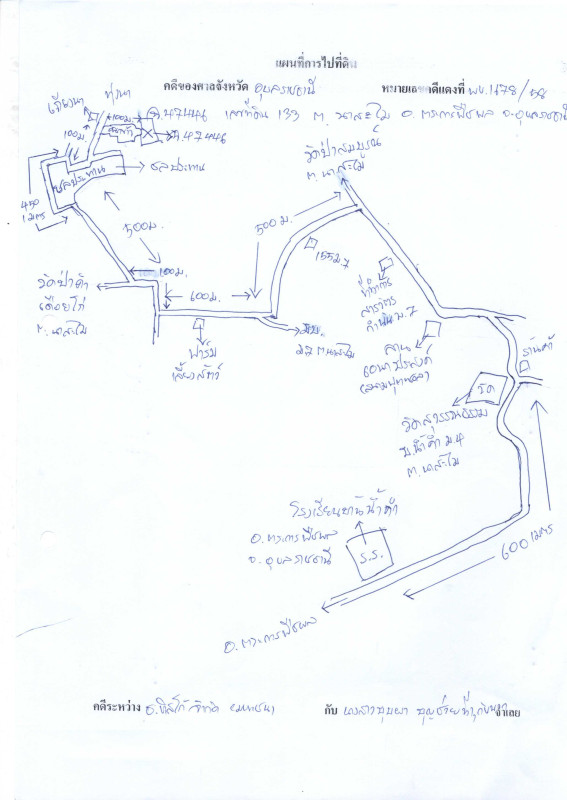 แผนที่การไปที่ดิน
คดีของศาลจังหวัด อุบลราชธานี หมายเลขคดีแดงที่ ผบ.1478/58
น.ส.47446 เลขที่ดิน 133 ต. นาสะไม อ. ตระการพืชผล จ. อุบลราชธานี
ทุ่งนา
100ม.
100ม.
47446
ชลประทาน
ชลประทาน
450
เมตร
วัดป่าสมบูรณ์
ต.นาสะไม
500ม.
500ม.
100ม.
600ม.
วัดป่าคำ
ต.นาสะไม
ฟาร์ม
เลี้ยงสัตว์
ที่ทำการ
สารวัตร
กำนัน ม.7
ลาน
ร้านค้า
วัด
วัดสุวรรณธรรม
บ.น้ำคำ ม.4
ต.นาสะไม
โรงเรียนบ้านน้ำคำ
อ.ตระการพืชผล
จ.อุบลราชธานี
ร.ร.
600 เมตร
อ.ตระการพืชผล
คดีระหว่าง ธ.ทิสโก้ จำกัด มหาชน กับ นางสาว จำเลย